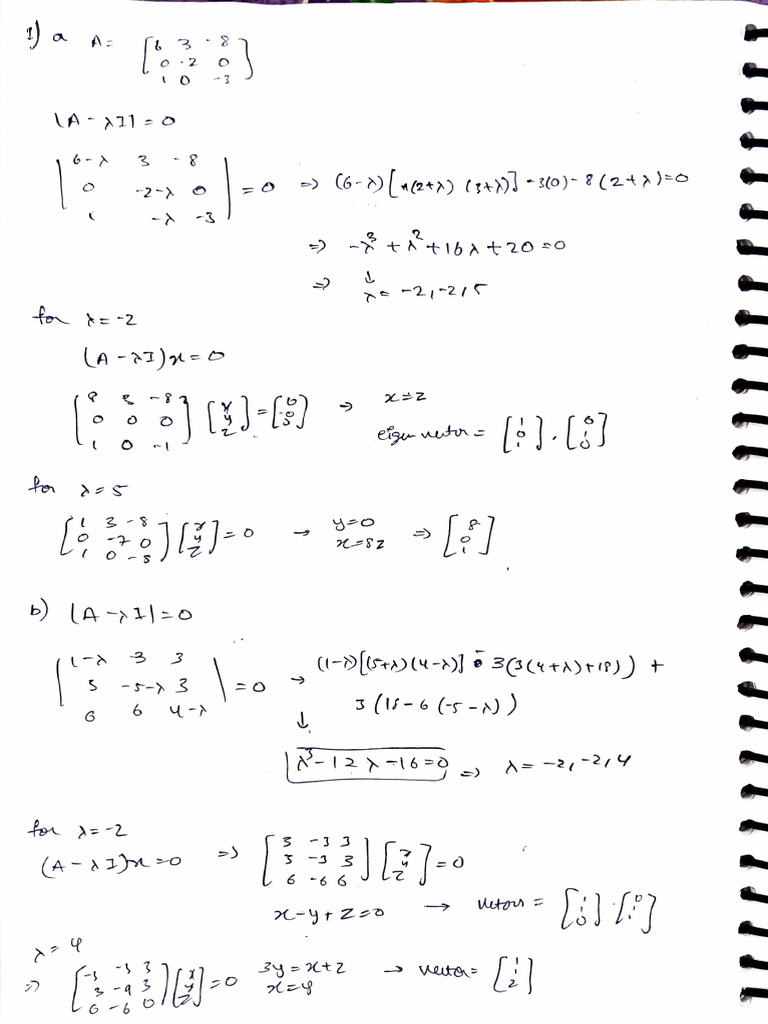 1) a A = [6 3 -8
0 -2 0
1 0 -3]
|A - λI| = 0
|6-λ 3 -8
0 -2-λ 0
1 -λ -3| = 0 ⇒ (6-λ)[(2+λ)(3+λ)] - 3(0) - 8(2+λ) = 0
⇒ -λ³ + λ² + 16λ + 20 = 0
⇒ ↓ λ = -2, -2, 5
for λ = -2
(A - λI)x = 0
[8 3 -8
0 0 0
1 0 -1] [x y z] = [0 0 0] → x = z
eigen vector = [1 0 1], [0 1 0]
for λ = 5
[1 3 -8
0 -7 0
1 0 -8] [x y z] = 0 → y = 0
x = 8z ⇒ [8 0 1]
b) |A - λI| = 0
|1-λ -3 3
3 -5-λ 3
6 6 4-λ| = 0 → (1-λ)[(5+λ)(4-λ)] - 3(3(4+λ)+18)) +
3(18-6(-5-λ))
↓
λ³ - 12λ - 16 = 0 ⇒ λ = -2, -2, 4
for λ = -2
(A - λI)x = 0 ⇒ [3 -3 3
3 -3 3
6 -6 6] [x y z] = 0
x - y + z = 0 → vectors = [1 1 0] [0 1 1]
λ = 4
⇒ [-3 -3 3
3 -9 3
6 -6 0] [x y z] = 0 3y = x + z
x = y → vector = [1 1 2]